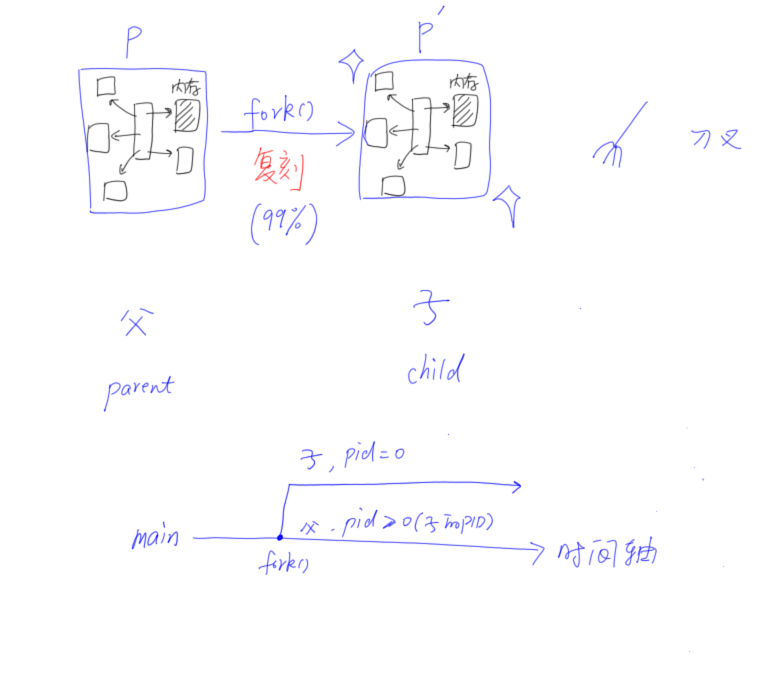 P
P′
内存
内存
fork()
复刻
(99%)
刀叉
父
子
parent
child
子, pid=0
main
父. pid>0(子的PID)
fork()
时间轴